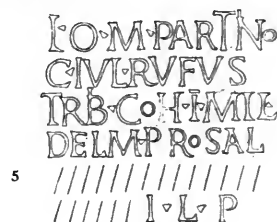 I·O·M·PARTIN·o
C·IVL·RVFVS
TRB·CoH·I·MILL
DELM·PRoSAL
5 / / / / / / / / / / / /
/ / / / / / / I·L·P